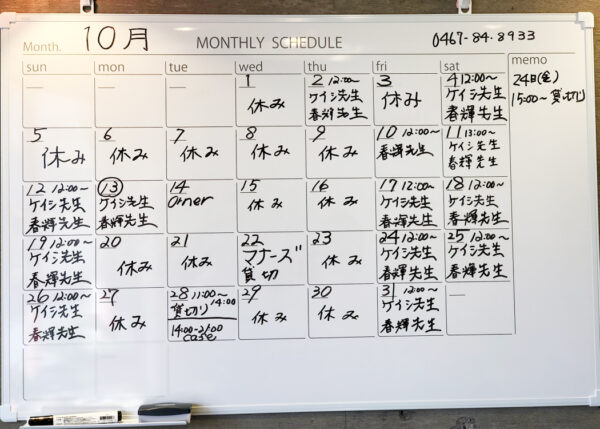 Month. 10月 MONTHLY SCHEDULE 0467-84-8933
sun mon tue wed thu fri sat memo
1
休み
2 12:00~
ケイシ先生
春輝先生
3
休み
4 12:00~
ケイシ先生
春輝先生
24日(金)
15:00~ 貸切り
5
休み
6
休み
7
休み
8
休み
9
休み
10 12:00~
春輝先生
11 13:00~
ケイシ先生
春輝先生
12 12:00~
ケイシ先生
春輝先生
13
ケイシ先生
春輝先生
14
15
休み
16
休み
17 12:00~
ケイシ先生
春輝先生
18 12:00~
ケイシ先生
春輝先生
19 12:00~
ケイシ先生
春輝先生
20
休み
21
休み
22
マナーズ
貸切
23
休み
24 12:00~
ケイシ先生
春輝先生
25 12:00~
ケイシ先生
春輝先生
26 12:00~
ケイシ先生
春輝先生
27
休み
28 11:00~
貸切り 14:00
14:00-21:00
case
29
休み
30
休み
31 12:00~
ケイシ先生
春輝先生